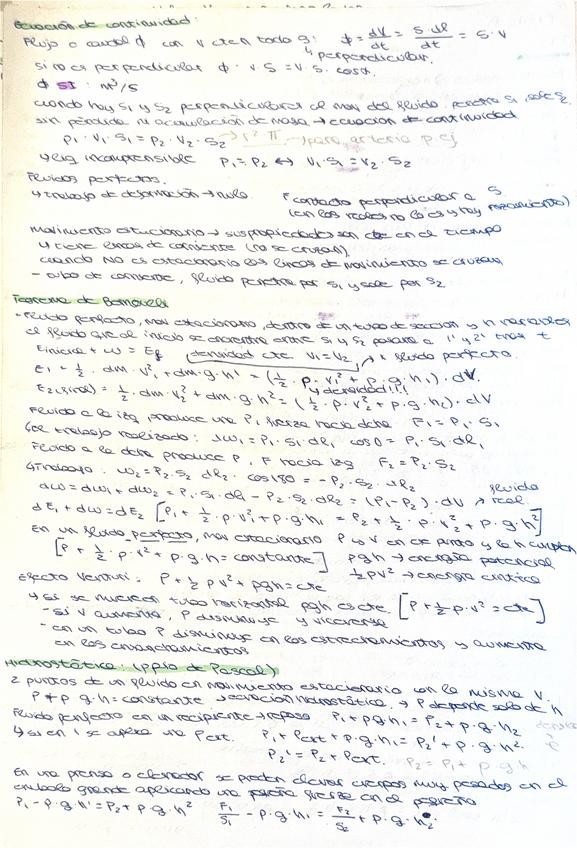 Ecuación de continuidad:
Flujo o caudal ϕ con v cte en todo g: ϕ = dV/dt = S·dl/dt = S·V
↳ perpendicular.
si no es perpendicular ϕ · V·S = V·S cosα.
ϕ SI: m³/s
cuando hay S1 y S2 perpendiculares al mov del fluido. penetra S1, sale S2
sin pérdida ni acumulación de masa → ecuación de continuidad
ρ1·V1·S1 = ρ2·V2·S2 → r²π → para arteria p.ej
↳ liq incompresible ρ1 = ρ2 ↔ V1·S1 = V2·S2
Fluidos perfectos.
↳ trabajo de deformación → nulo. contacto perpendicular a S
(en los reales no lo es y hay rozamiento)
movimiento estacionario → sus propiedades son cte en el tiempo
↳ tiene líneas de corriente (no se cruzan)
cuando NO es estacionario las líneas de movimiento se cruzan
- tubo de corriente, fluido penetra por S1 y sale por S2
Teorema de Bernoulli
- Fluido perfecto, mov estacionario, dentro de un tubo de sección y h variables
el fluido que al inicio se encuentra entre S1 y S2 pasará a 1' y 2' tras t
Einicial + W = Ef densidad cte V1 = V2, x fluido perfecto.
E1 = ½·dm·V1² + dm·g·h1 = (½·ρ·V1² + ρ·g·h1)·dV.
↳ densidad!!!
E2 (final) = ½·dm·V2² + dm·g·h2 = (½·ρ·V2² + ρ·g·h2)·dV
Fluido a la izq produce una P, fuerza hacia dcha F1 = P1·S1
↳ el trabajo realizado: dW1 = P1·S1·dl1 cos0 = P1·S1·dl1
Fluido a la dcha produce P, F hacia izq F2 = P2·S2
↳ Trabajo: W2 = P2·S2 dl2·cos180 = -P2·S2·dl2
dW = dW1 + dW2 = P1·S1·dl1 - P2·S2·dl2 = (P1 - P2)·dV → fluido real.
dE1 + dW = dE2 [P1 + ½·ρ·V1² + ρ·g·h1 = P2 + ½·ρ·V2² + ρ·g·h2]
En un fluido perfecto, mov estacionario P y V en cte punto y la h cumplen
[P + ½·ρ·V² + ρ·g·h = constante] ρgh → energía potencial
½ρV² → energía cinética
Efecto Venturi: P + ½ρV² + ρgh = cte
↳ si se mueve en tubo horizontal ρgh es cte. [P + ½ρ·V² = cte]
- si V aumenta, P disminuye y viceversa
- en un tubo P disminuye en los estrechamientos y aumenta
en los ensanchamientos
Hidrostática: (ppio de Pascal)
2 puntos de un fluido en movimiento estacionario con la misma V:
P + ρ g·h = constante → ecuación hidrostática, → P depende solo de h
Fluido perfecto en un recipiente → reposo P1 + ρgh1 = P2 + ρ·g·h2
↳ si en 1 se aplica una Pext. P1 + Pext + ρ·g·h1 = P2' + ρ·g·h2.
P2' = P2 + Pext. P2 = P1 + ρgh
En una prensa o elevador se pueden elevar cuerpos muy pesados en el
émbolo grande aplicando una pequeña fuerza en el pequeño
P1 - ρ·g·h1 = P2 + ρ·g·h2 F1/S1 - ρ·g·h1 = F2/S2 + ρ·g·h2.